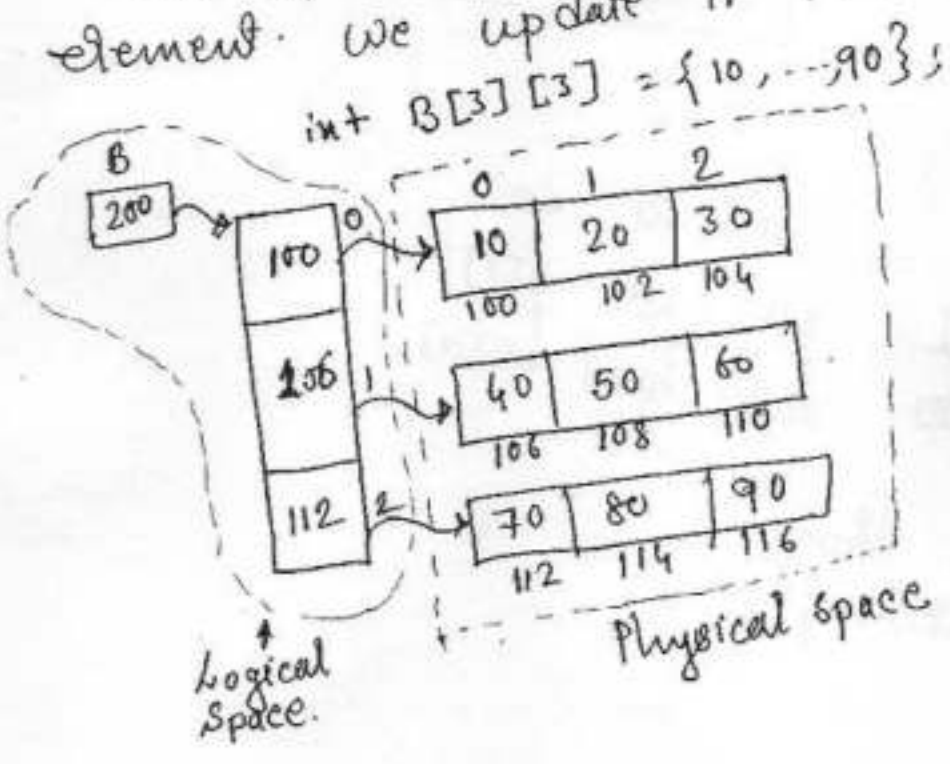 element. we update
int B[3][3] = {10, ---,90};
B
200
0 1 2
100 0 10 20 30
100 102 104
106 1 40 50 60
106 108 110
112 2 70 80 90
112 114 116
Logical
Space.
Physical space